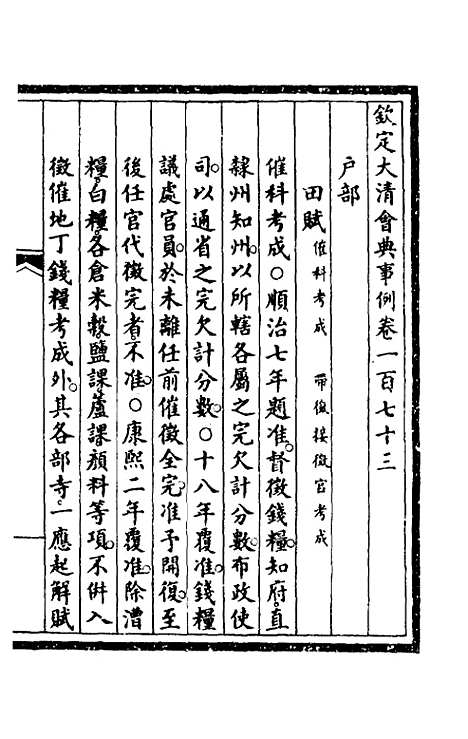 欽定大清會典事例卷一百七十三
户部
田賦催科考成　帶徵接徵官考成
催科考成○順治七年題准。督徵錢糧。知府直
隸州知州。以所轄各屬之完欠計分數。布政使
司。以通省之完欠計分數。○十八年覆准。錢糧
議處官員。於未離任前催徵全完。准予開復。至
後任官代徵完者。不准。○康熙二年覆准。除漕
糧。白糧。各倉米穀。鹽課。蘆課。顏料等項。不併入
徵催地丁錢糧考成外。其各部寺。一應起解賦